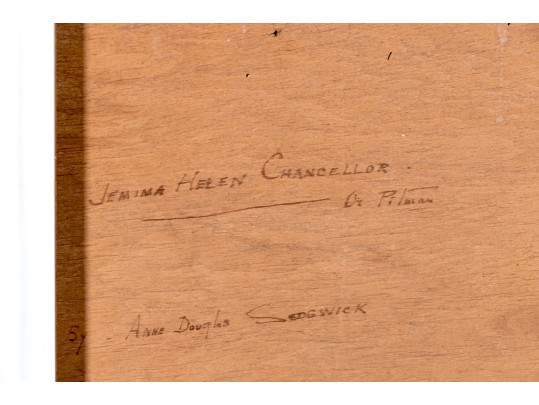 JEMIMA HELEN CHANCELLOR.
Pitman
By - ANNE DOUGLAS SEDGWICK